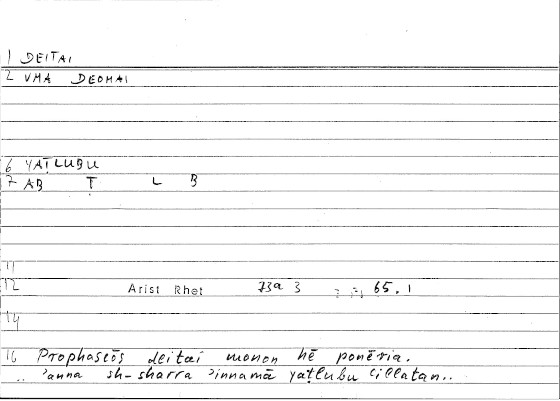 1 DEITAI
2 VMA DEOMAI
6 YAṬLUBU
7 AB Ṭ L B
11
12 Arist Rhet 73a 3 65.1
14
16 Prophaseōs deitai monon hē ponēria.
.. 'anna sh-sharra 'innamā yaṭlubu